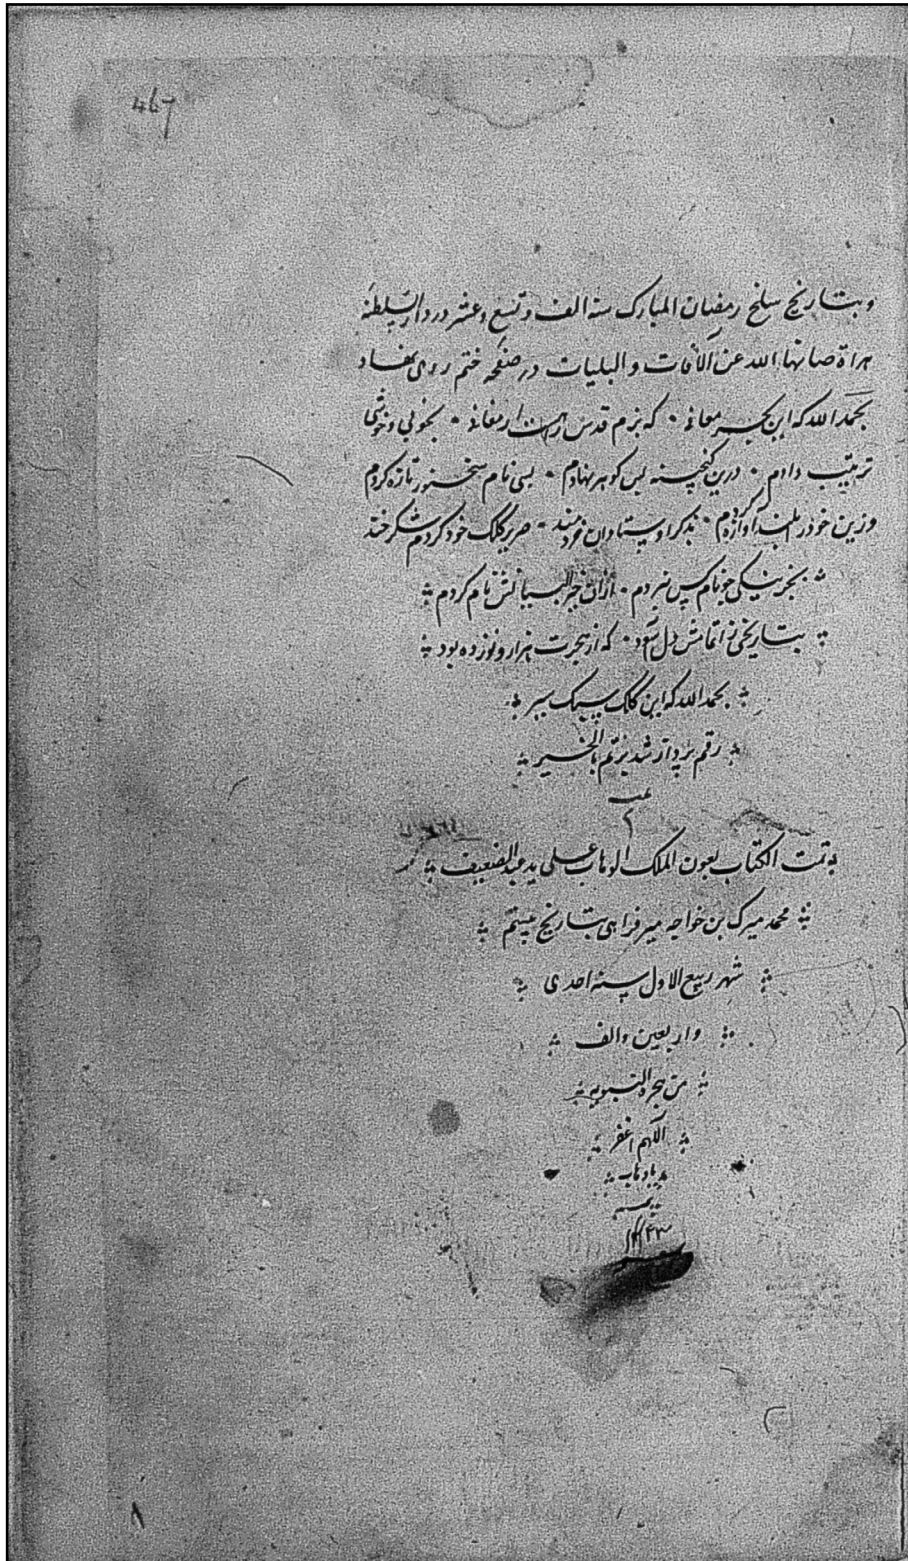 467
وبتاریخ سلخ رمضان المبارک سنه الف و تسع و عشر در دار السلطنه
هراة صانها الله عن الآفات و البلیات در صفحه ختم روی نهاد
بحمد الله که این معانی • که بزم قدس را ارمغانی • بخوبی و خوشی
ترتیب دادم • درین گنجینه بس کوهر نهادم • بسی نام سخنور تازه کردم
وزین خود را بلند آوازه کردم • بذکر اوستادان خردمند • صریر کلک خود کردم شکرخند
بخیر نیکی چو نام کس نبردم • ازان خیر البیانش نام کردم
بتاریخی ز اتمامش دل آسود • که از هجرت هزار و نوزده بود
بحمد الله که این کلک سبک سیر
رقم پرداز شد بر تم بالخیر
تمت الکتاب بعون الملک الوهاب علی ید عبد الضعیف
محمد میرک بن خواجه میر فراهی بتاریخ بیستم
شهر ربیع الاول سنه احدی
و اربعین و الف
من هجرة النبویه
اللهم اغفر
یا وهاب